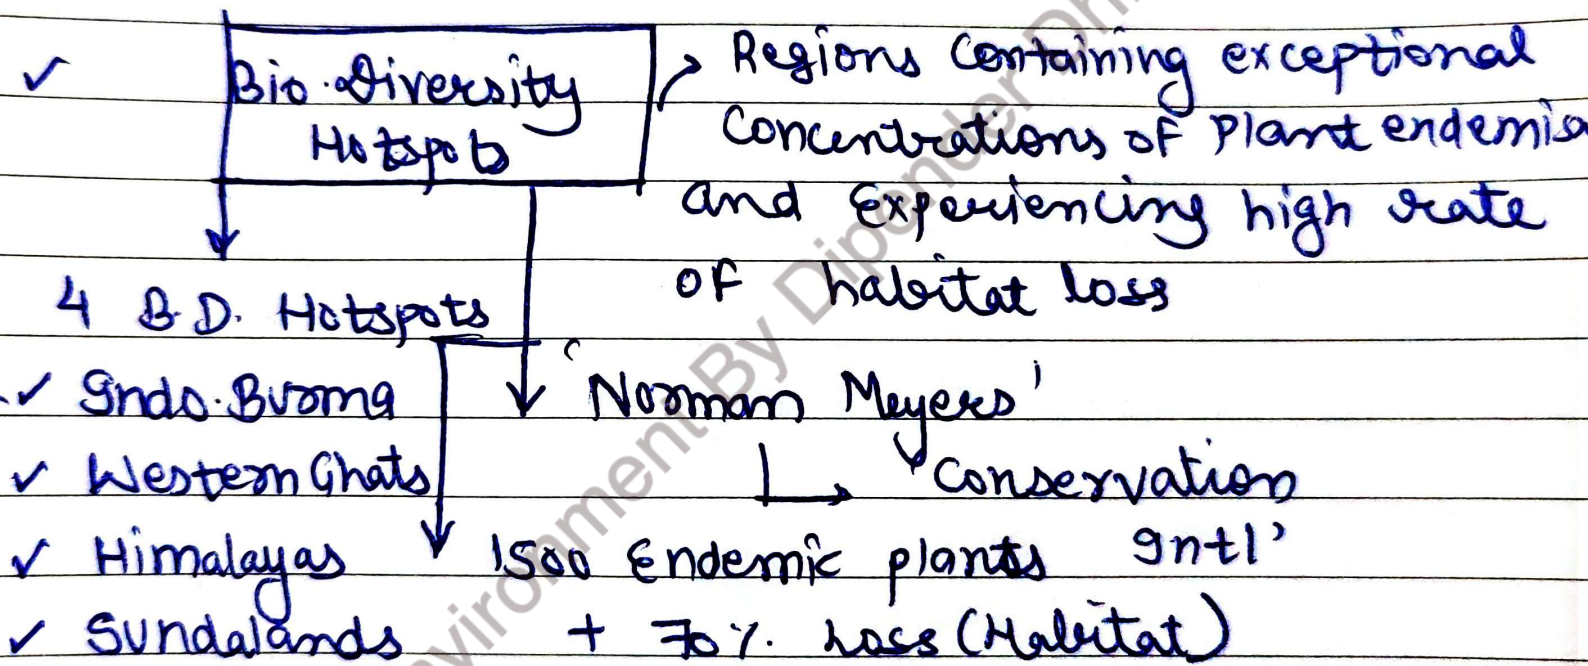 ✓ Bio.Diversity Hotspots
Regions Containing exceptional
Concentrations of Plant endemis
and Experiencing high rate
of habitat loss
4 B.D. Hotspots
✓ Indo.Burma
✓ Western Ghats
✓ Himalayas
✓ Sundalands
'Norman Meyers'
'Conservation
Intl'
1500 Endemic plants
+ 70%. Loss (Habitat)
Environment By Dipender